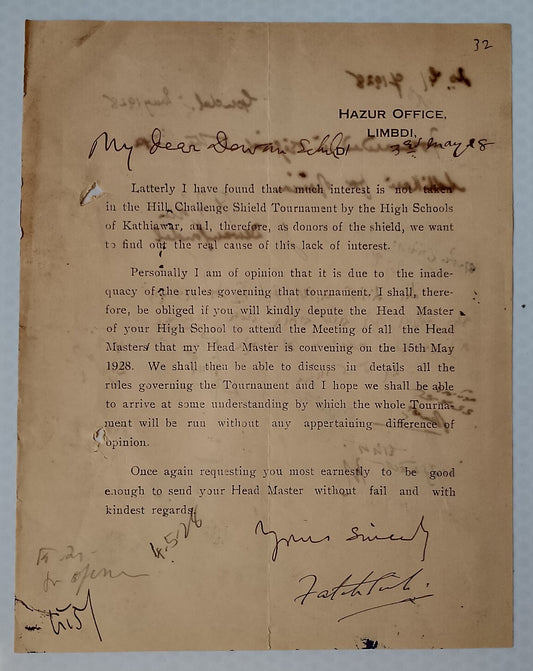 32
HAZUR OFFICE,
LIMBDI,
3rd May 28
My Dear Dewan Sahib
Latterly I have found that much interest is not taken
in the Hill Challenge Shield Tournament by the High Schools
of Kathiawar, and, therefore, as donors of the shield, we want
to find out the real cause of this lack of interest.
Personally I am of opinion that it is due to the inade-
quacy of the rules governing that tournament. I shall, there-
fore, be obliged if you will kindly depute the Head Master
of your High School to attend the Meeting of all the Head
Masters that my Head Master is convening on the 15th May
1928. We shall then be able to discuss in details all the
rules governing the Tournament and I hope we shall be able
to arrive at some understanding by which the whole Tourna-
ment will be run without any appertaining difference of
opinion.
Once again requesting you most earnestly to be good
enough to send your Head Master without fail and with
kindest regards,
Yours Sincerely
4.5.28